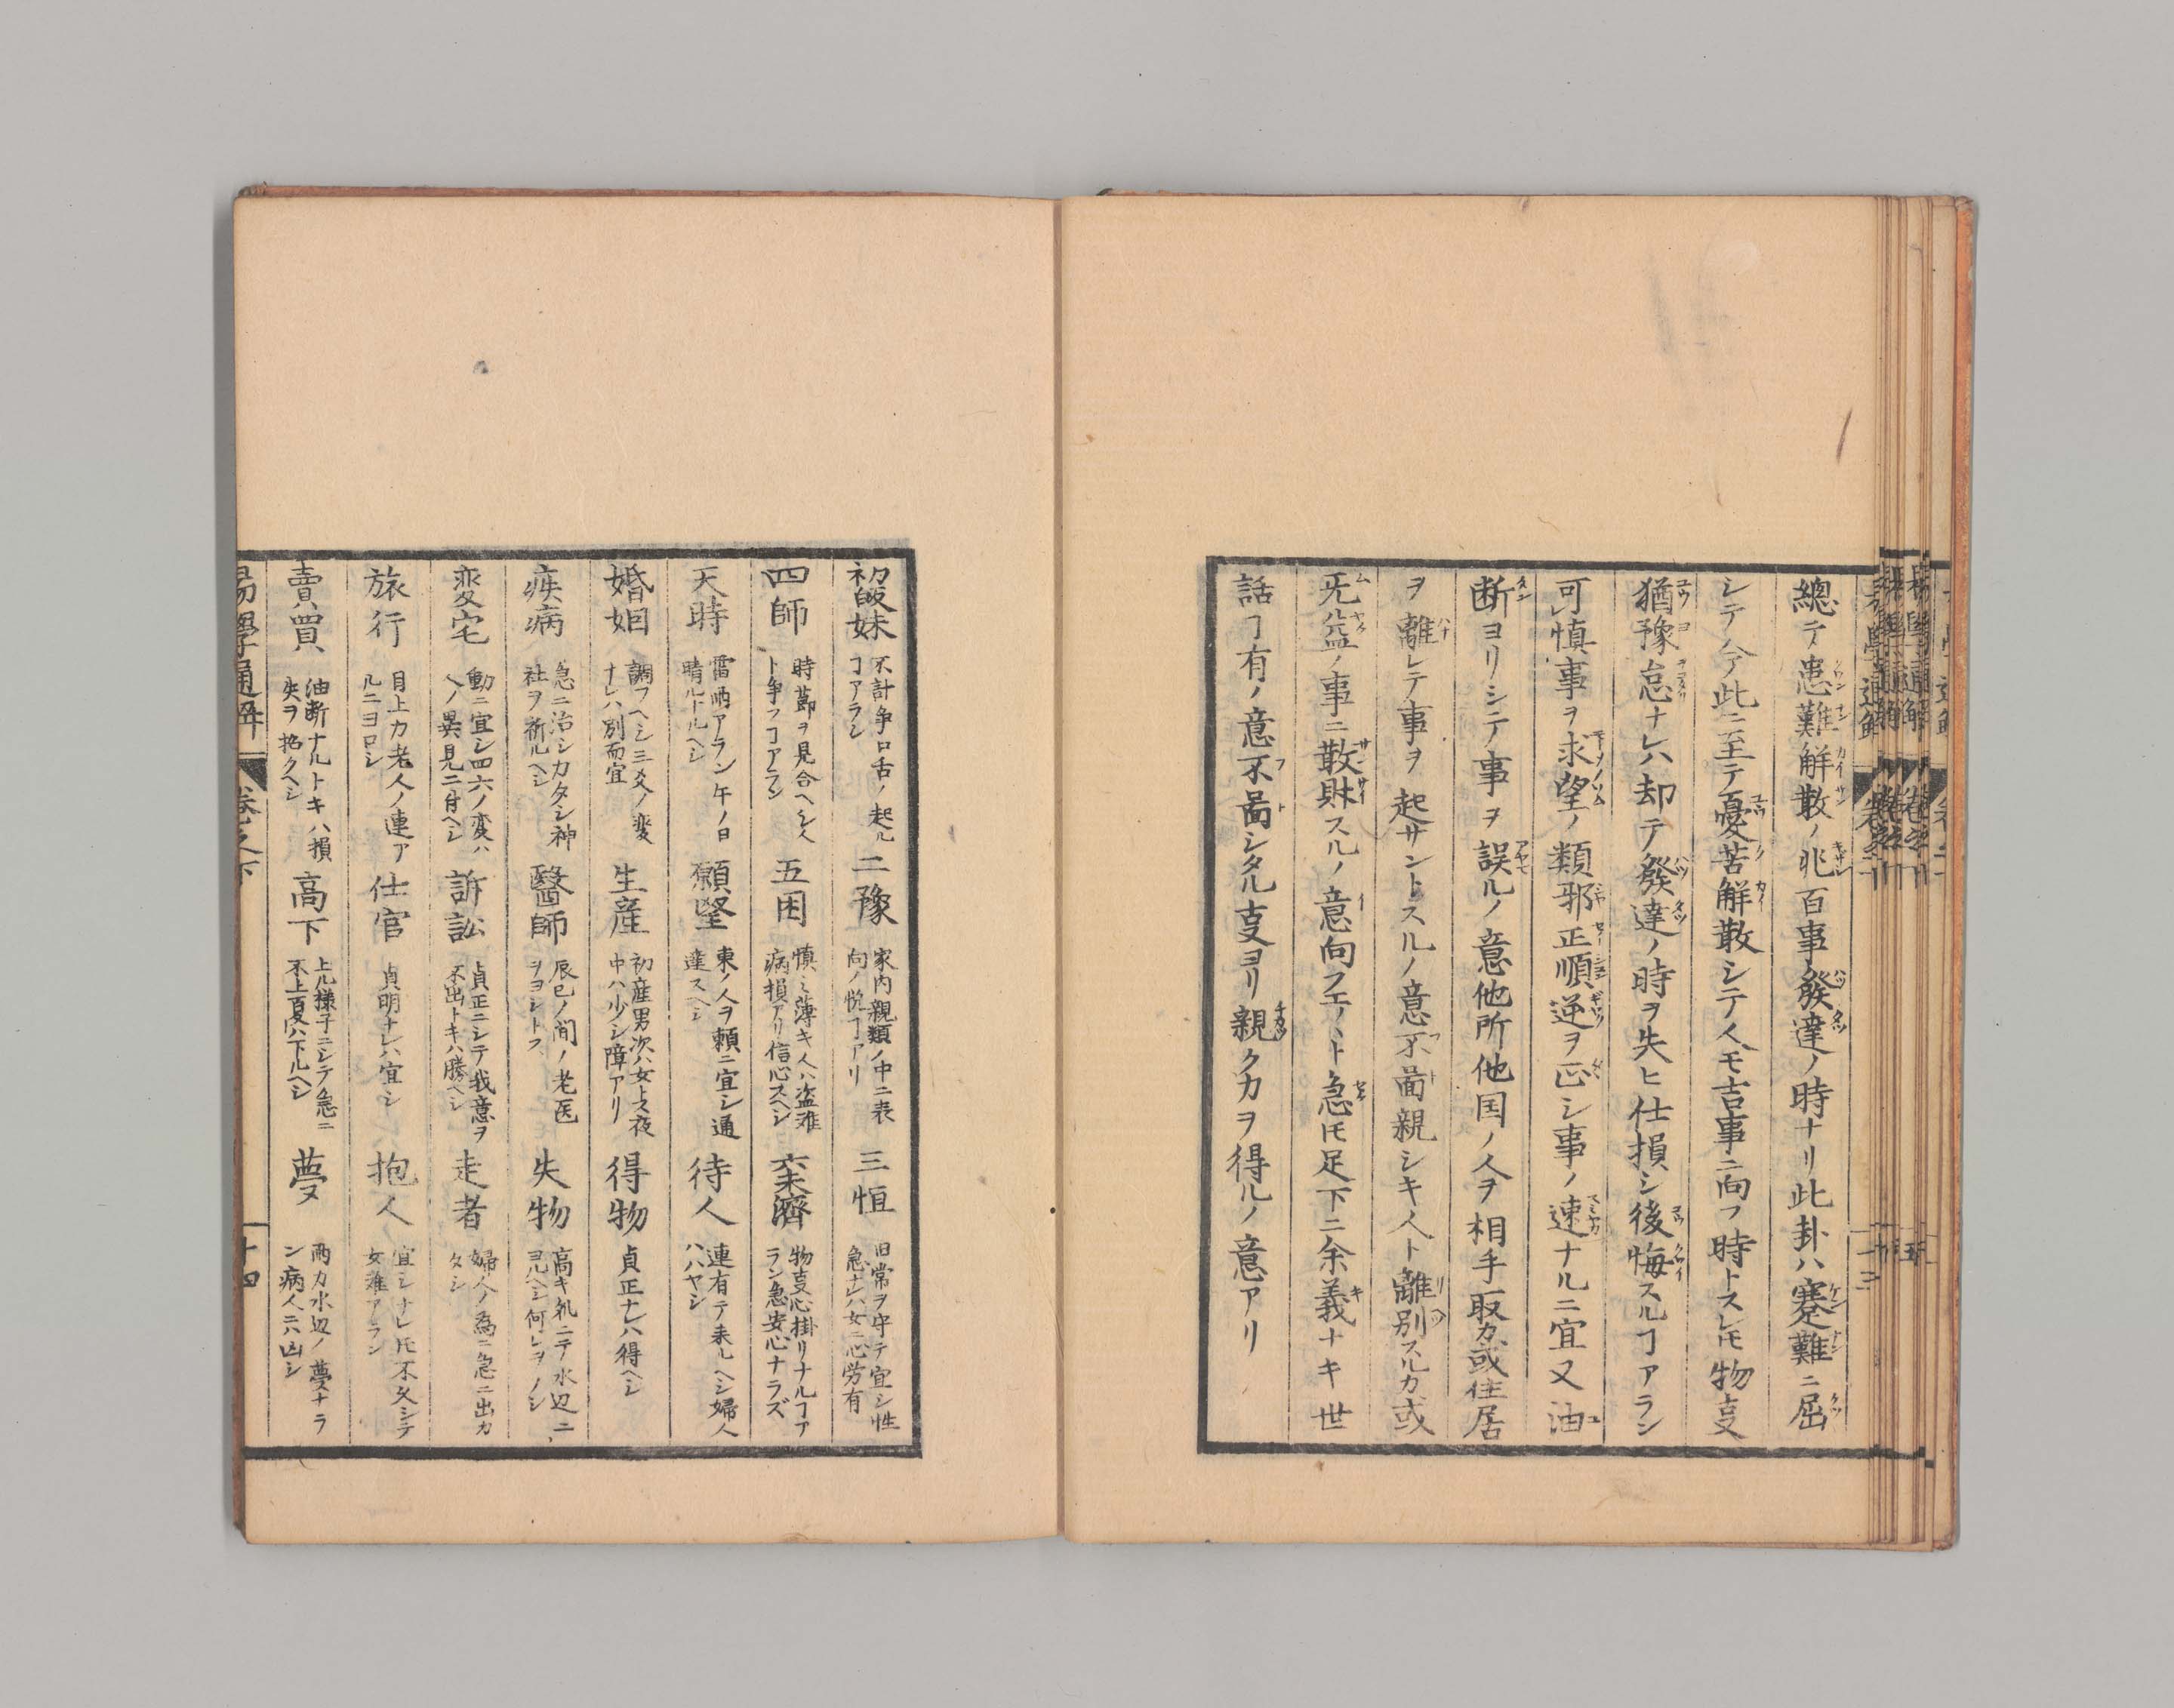 總テ患難解散ノ兆百事發達ノ時ナリ此卦ハ蹇難ニ屈
シテ今此ニ至テ憂苦解散シテ人モ吉事ニ向フ時トスレ𪜈物叓
猶豫怠ナレハ却テ發達ノ時ヲ失ヒ仕損シ後悔スルヿアラン
可慎事ヲ求望ノ類邪正順逆ヲ正シ事ノ速ナルニ宜又油
断ヨリシテ事ヲ誤ルノ意他所他国ノ人ヲ相手取カ或住居
ヲ離レテ事ヲ起サントスルノ意不啚親シキ人ト離別スルカ或
无益ノ事ニ散財スルノ意向フエハト急𪜈足下ニ余義ナキ世
話ヿ有ノ意不啚シタル叓ヨリ親クカヲ得ルノ意アリ
初皈妹 不計争口舌ノ起ル
ヿアラン
二豫 家内親類ノ中ニ表
向ノ悦ヿアリ
三恒 旧常ヲ守テ宜シ性
急ナレハ女ニ心労有
四師 時節ヲ見合ヘシ人
ト争フヿアラン
五困 慎ミ薄キ人ハ盗难
病損アリ信心スヘシ
六未濟 物叓心掛リナルヿア
ラン急安心ナラズ
天時 雷雨アラン午ノ日
晴ルトルヘシ
願望 東ノ人ヲ頼ニ宜シ通
達スヘシ
待人 連有テ来ルヘシ婦人
ハハヤシ
婚姻 調フヘシ三爻ノ変
ナレハ別而宜
生産 初産男次ハ女トス夜
中ハ少シ障アリ
得物 貞正ナレハ得ヘシ
疾病 急ニ治シカタシ神
社ヲ祈ルヘシ
醫師 辰巳ノ間ノ老医
ヲヨシトス
失物 高キ処ニテ水辺ニ
ヨルヘシ何レヲソシ
変宅 動ニ宜シ四六ノ変ハ
人ノ異見ニ付ヘシ
訴訟 貞正ニシテ我意ヲ
不出トキハ勝ヘシ
走者 婦人ノ為ニ急ニ出カ
タシ
旅行 目上カ老人ノ連ア
ルニヨロシ
仕官 貞明ナレハ宜シ
抱人 宜シナレ𪜈不久シテ
女难アラン
賣買 油断ナルトキハ損
失ヲ招クヘシ
高下 上ル様子ニシテ急ニ
不上夏ハ下ルヘシ
夢 雨カ水辺ノ夢ナラ
ン病人ニハ凶シ
易學通解 卷之下 十四